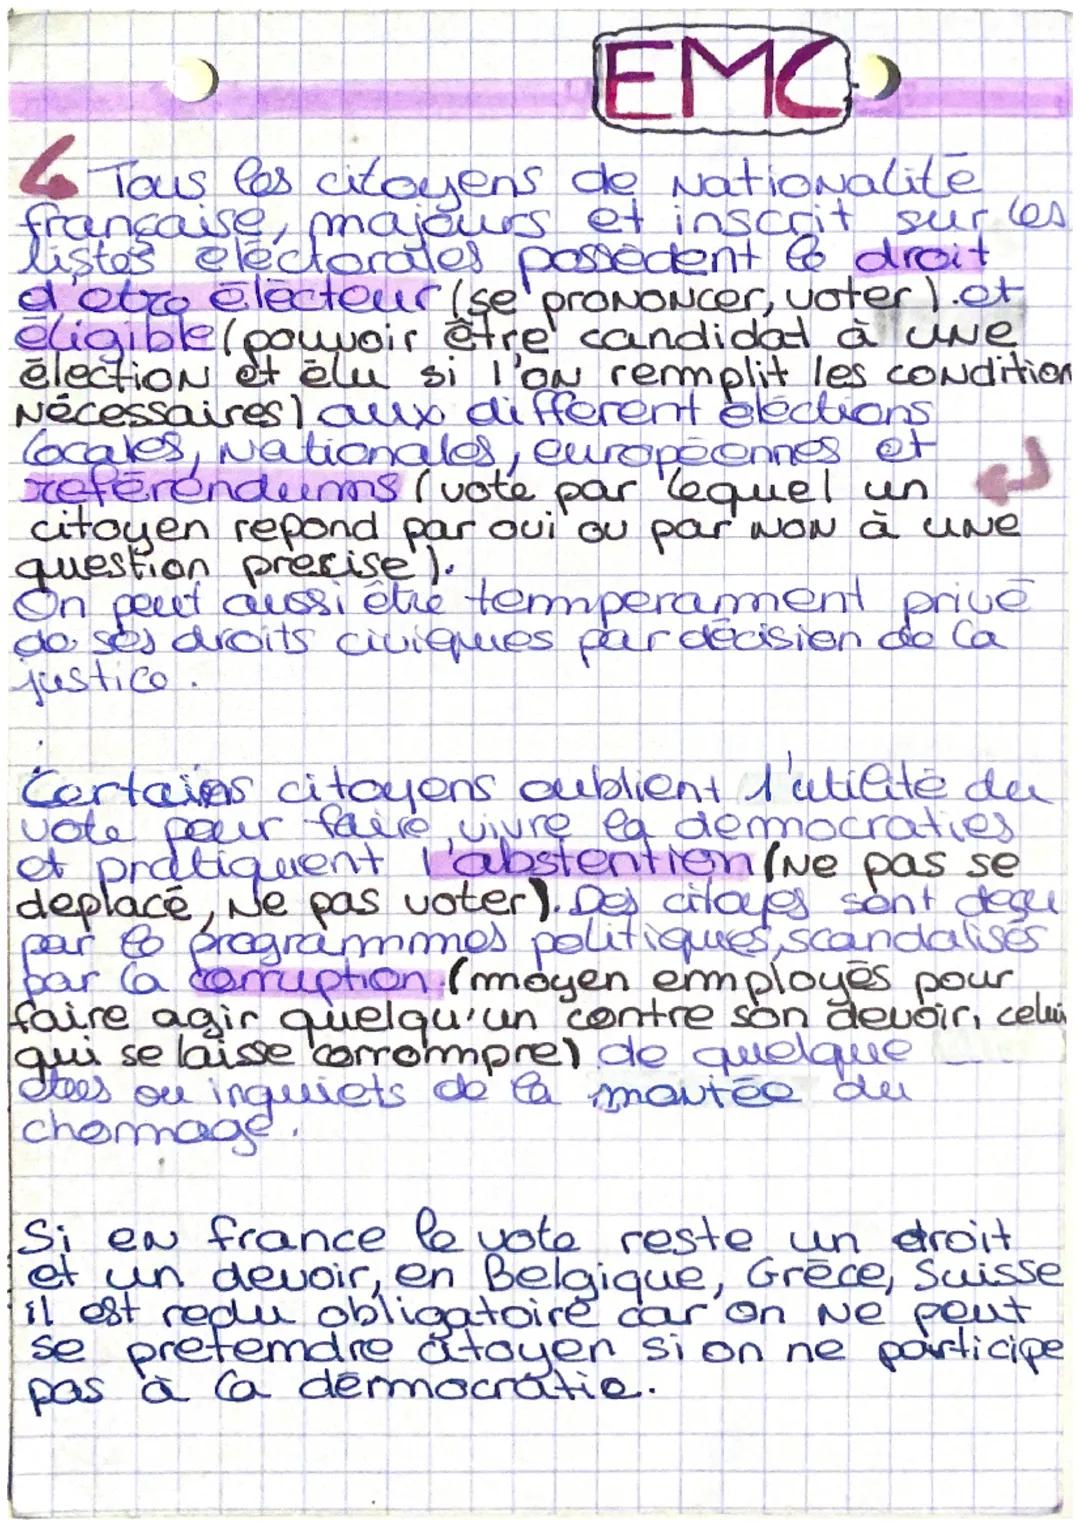 EMC
Tous les citoyens de Nationalité
française, majours et inscrit sur les
listes électorales possèdent le droit
d'etre électeur (se prononcer, voter). et
éligible (pouvoir être candidat à une
élection et élu si l'on remplit les condition
Nécessaires) aux différent éléctions
locales, Nationales, européennes et
reférendums (vote par lequel un
citoyen repond par oui ou par non à une
question precise).
On peut aussi être temperamment privé
de ses droits civiques par décision de la
justice.
Certains citoyens oublient l'utilité du
vote pour faire vivre la democraties
et pratiquent l'abstention (Ne pas se
deplacé, Ne pas voter). Des citoyes sont deçu
par le programmes politiques, scandalisés
par la corruption (moyen employés pour
faire agir quelqu'un contre son devoir, celui
qui se laisse corrompre) de quelque
élus ou inquiets de la montée du
chomage.
Si en france le vote reste un droit
et un devoir, en Belgique, Grèce, Suisse
il est redu obligatoire car on Ne peut
se pretendre citoyen si on ne participe
pas à la démocratie.